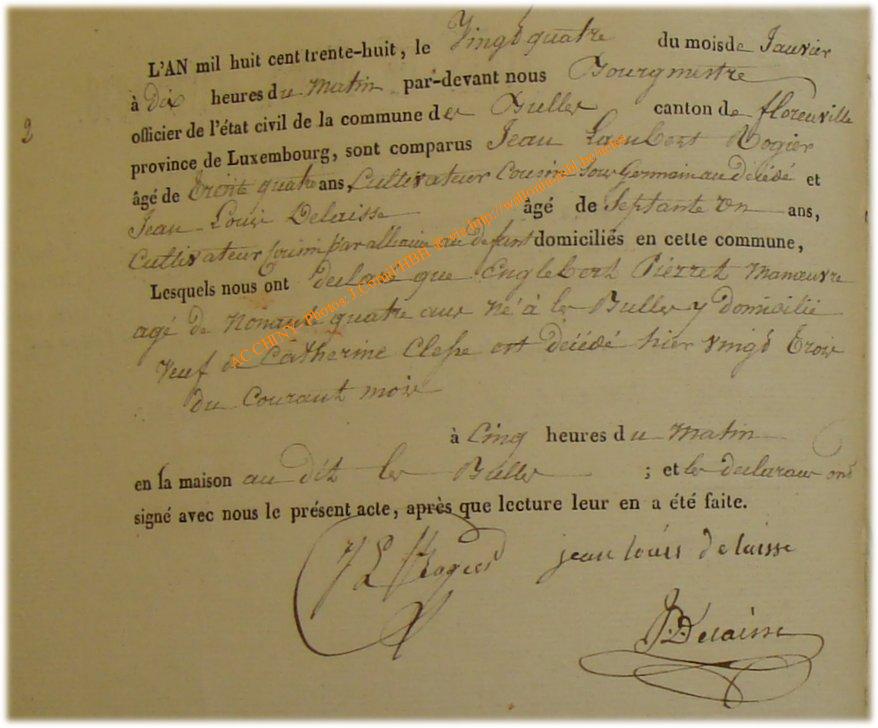 L'AN mil huit cent trente-huit, le Vingt quatre du mois de Janvier
à dix heures du Matin par-devant nous Bourgmestre
officier de l'état civil de la commune des Bulles canton de florenville
2
province de Luxembourg, sont comparus Jean Lambert Rogier
âgé de Trente quatre ans, Cultivateur Cousin sous Germain au décédé et
Jean Louis Delaisse âgé de Septante un ans,
Cultivateur Cousin par alliance au defunt domiciliés en cette commune,
Lesquels nous ont declaré que Englebert Pierret Manœuvre
agé de Nonante quatre ans né à les Bulles y domicilié
Veuf de Catherine Clesse est décédé hier vingt trois
du Courant mois
à Cinq heures du Matin
en sa maison au dit les Bulles ; et les declarans ont
signé avec nous le présent acte, après que lecture leur en a été faite.
J L Rogier jean louis delaisse
Delaisse
AC CHINY photos J.Cornu HBH